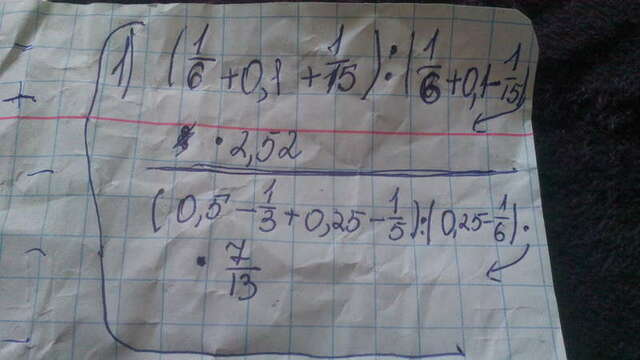 1) (1/6 + 0,1 + 1/15) : (1/6 + 0,1 - 1/15)
· 2,52
(0,5 - 1/3 + 0,25 - 1/5) : (0,25 - 1/6) ·
· 7/13